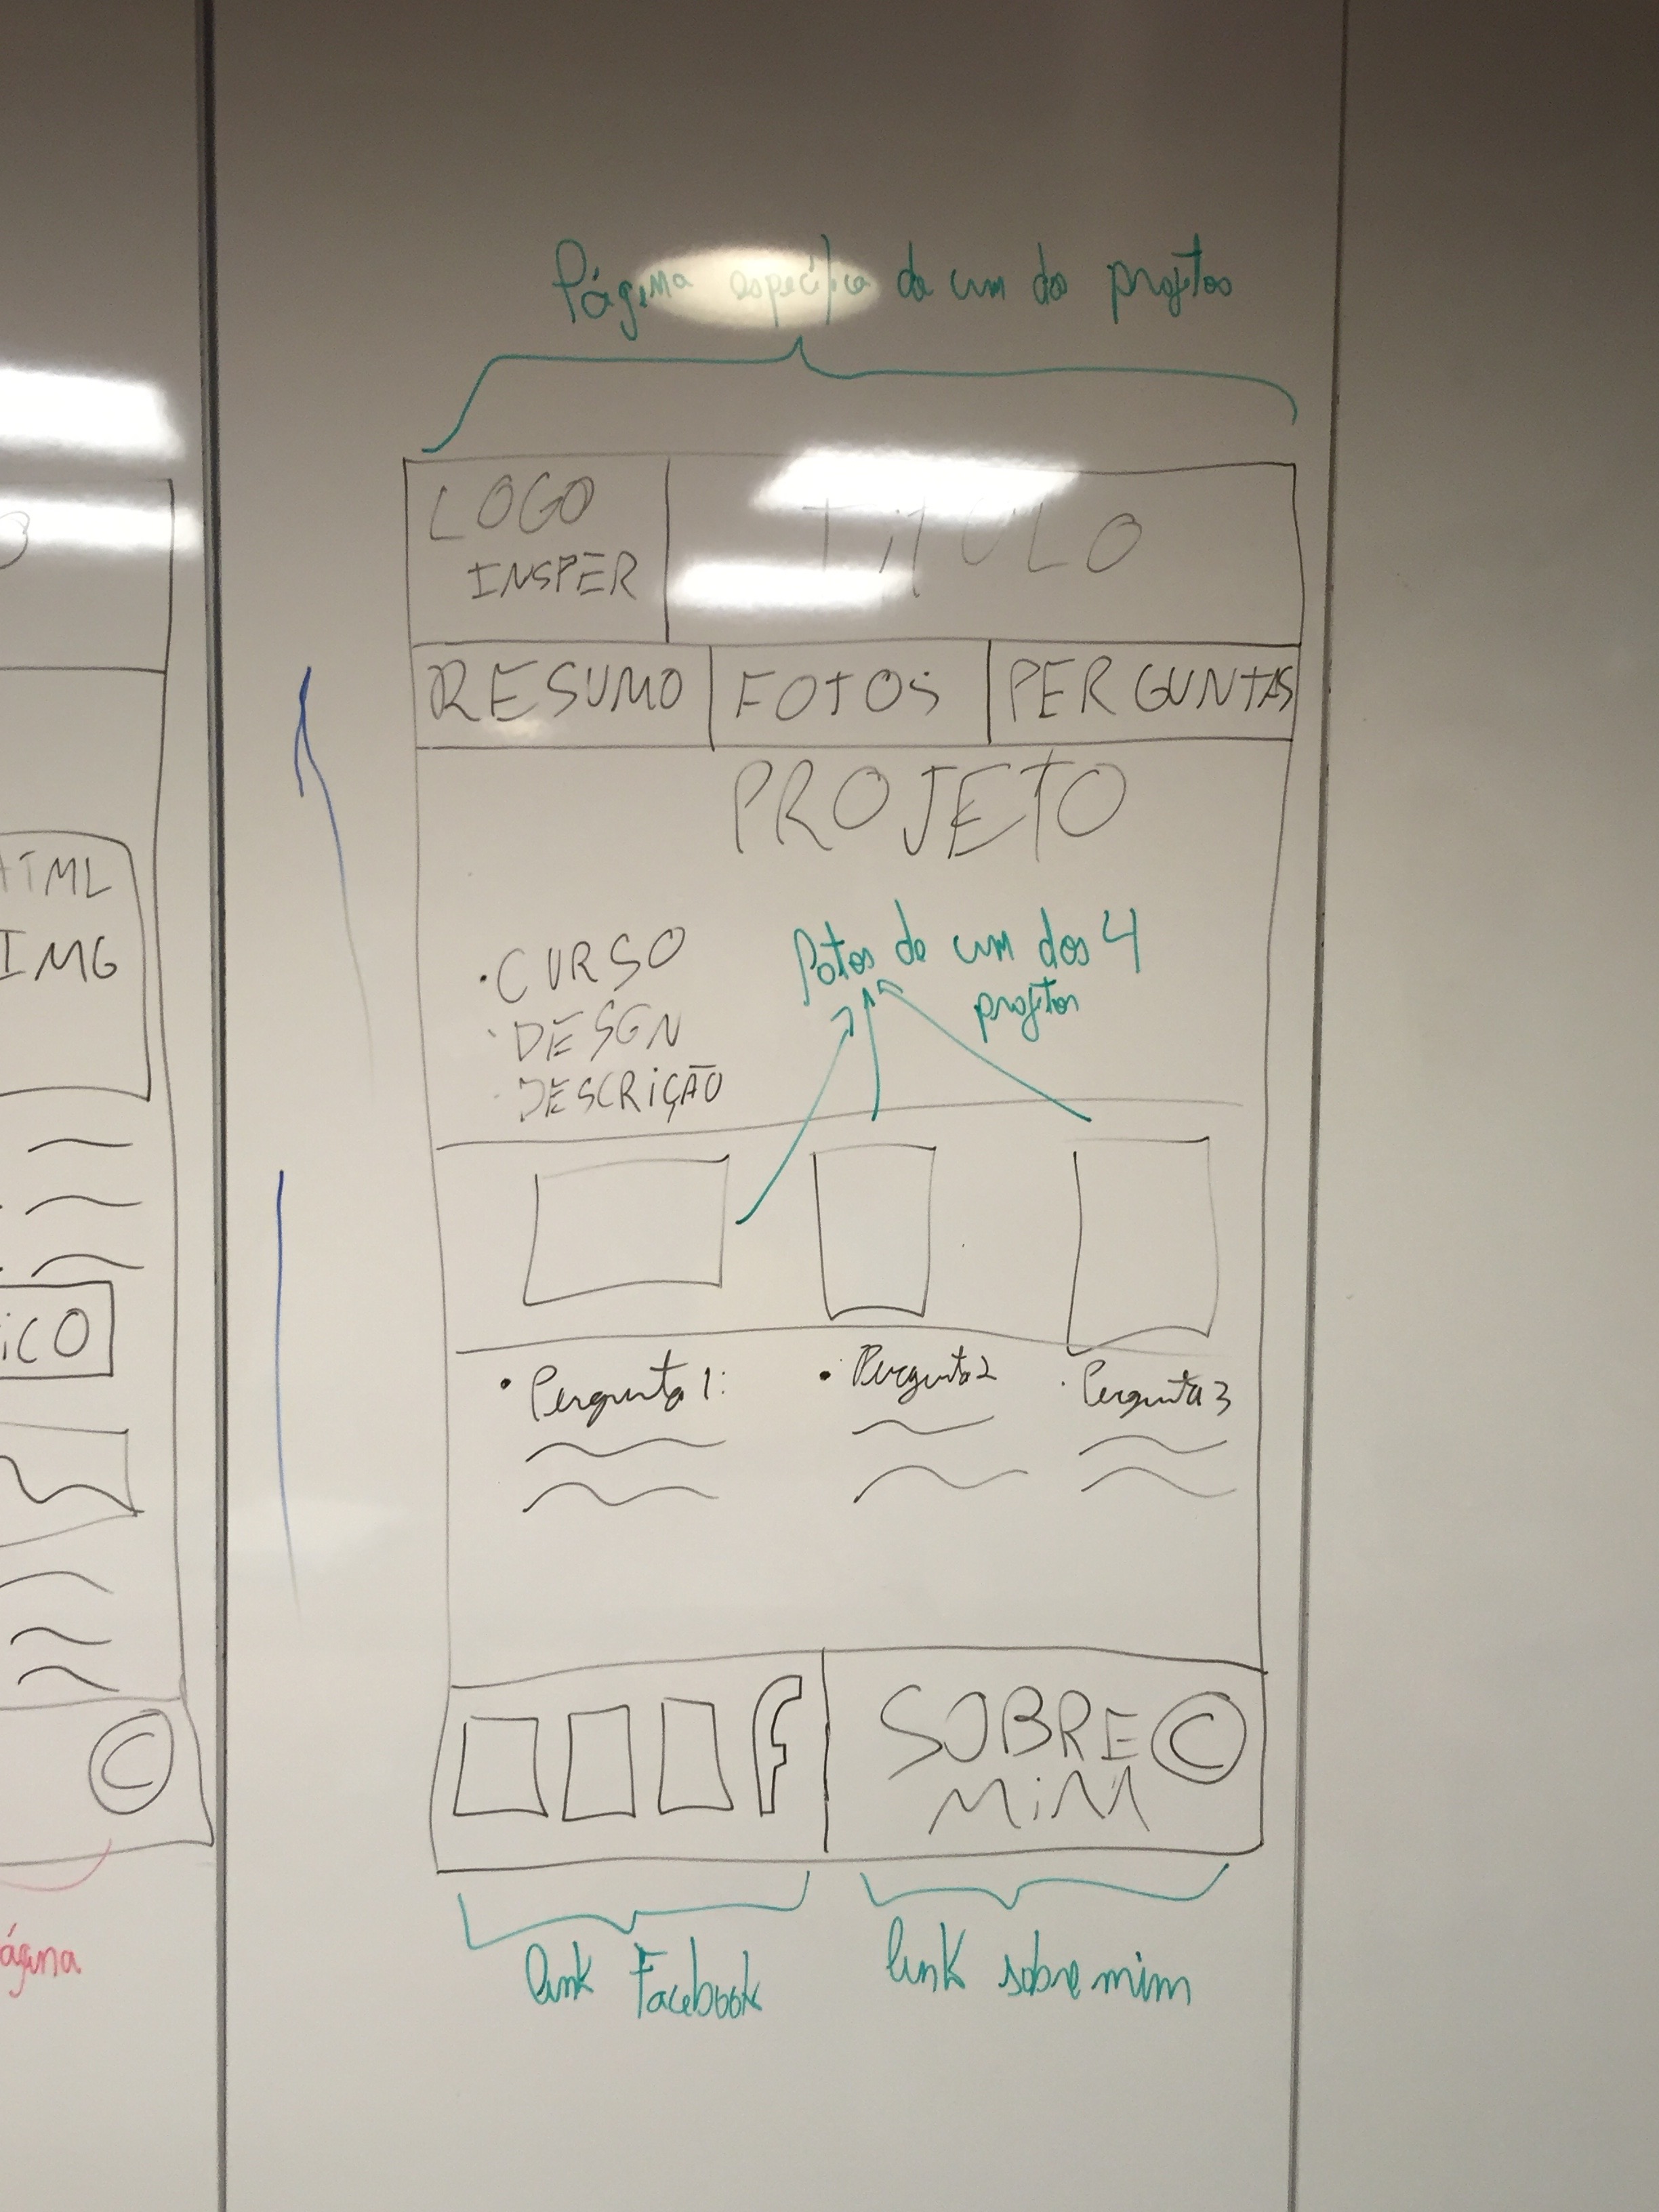 Página específica de um dos projetos
LOGO
INSPER
TÍTULO
RESUMO FOTOS PERGUNTAS
PROJETO
• CURSO
• DESGN
• DESCRIÇÃO
fotos de um dos 4
projetos
• Pergunta 1:
• Pergunta 2
• Pergunta 3
f
SOBRE ©
MiM
link Facebook
link sobre mim
HTML
IMG
iCO
©
ágina